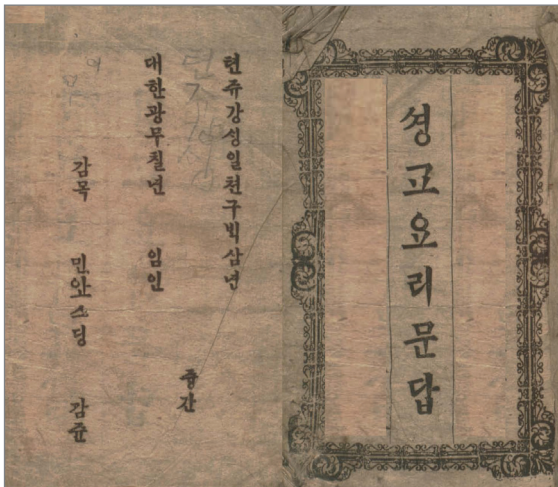 셩교요리문답
텬쥬강셩일쳔구ᄇᆡᆨ삼년
대한광무칠년 임인
즁간
감목 민아오스딩 감쥰